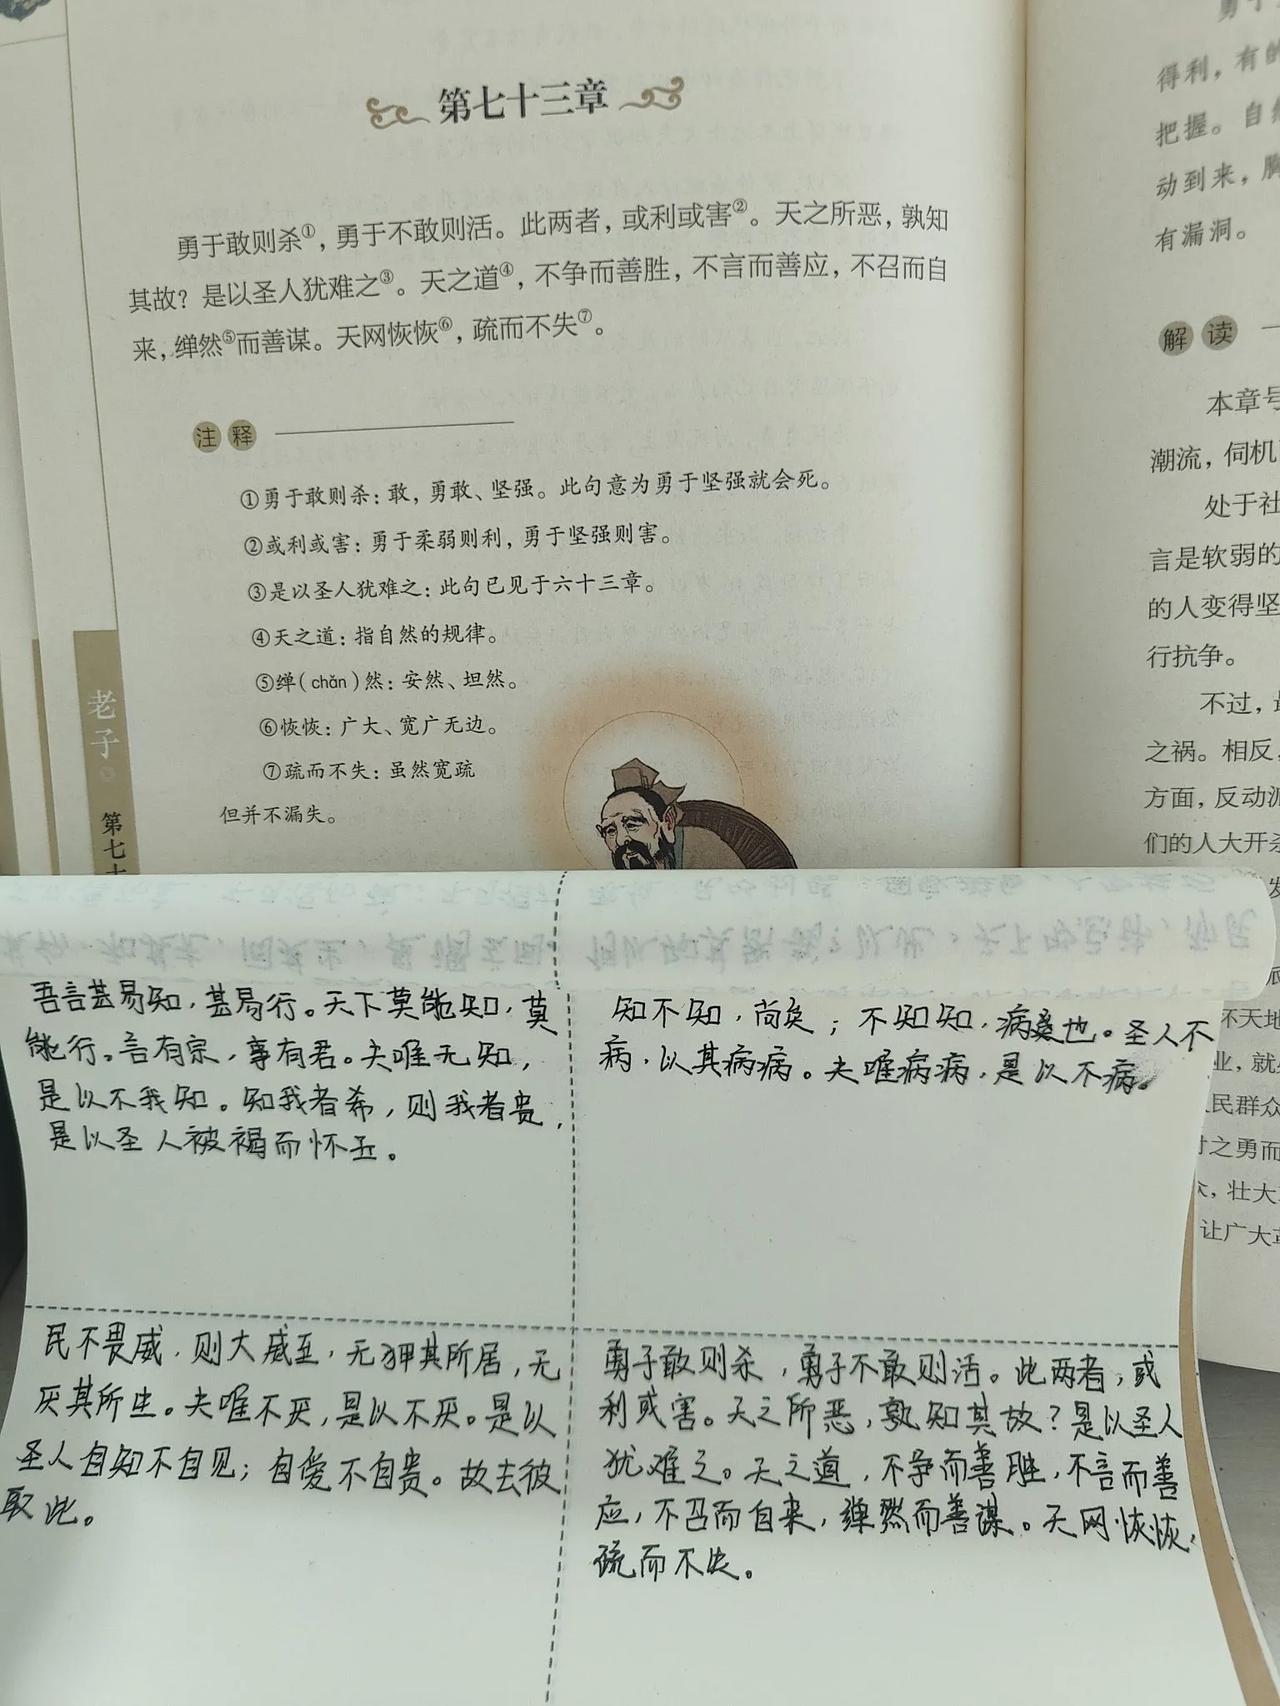 第七十三章
勇于敢则杀①，勇于不敢则活。此两者，或利或害②。天之所恶，孰知
其故？是以圣人犹难之③。天之道④，不争而善胜，不言而善应，不召而自
来，繟然⑤而善谋。天网恢恢⑥，疏而不失⑦。
注释
①勇于敢则杀：敢，勇敢、坚强。此句意为勇于坚强就会死。
②或利或害：勇于柔弱则利，勇于坚强则害。
③是以圣人犹难之：此句已见于六十三章。
④天之道：指自然的规律。
⑤繟（chǎn）然：安然、坦然。
⑥恢恢：广大、宽广无边。
⑦疏而不失：虽然宽疏
但并不漏失。
老子
第七十
得利，有的
把握。自然
动到来，胸
有漏洞。
解读
本章号
潮流，伺机
处于社
言是软弱的
的人变得坚
行抗争。
不过，最
之祸。相反，
方面，反动派
们的人大开杀
发
不天地
业，就
民群众
之勇而
众，壮大
让广大
吾言甚易知，甚易行。天下莫能知，莫
能行。言有宗，事有君。夫唯无知，
是以不我知。知我者希，则我者贵，
是以圣人被褐而怀玉。
知不知，尚矣；不知知，病也。圣人不
病，以其病病。夫唯病病，是以不病。
民不畏威，则大威至，无狎其所居，无
厌其所生。夫唯不厌，是以不厌。是以
圣人自知不自见；自爱不自贵。故去彼
取此。
勇于敢则杀，勇于不敢则活。此两者，或
利或害。天之所恶，孰知其故？是以圣人
犹难之。天之道，不争而善胜，不言而善
应，不召而自来，繟然而善谋。天网恢恢，
疏而不失。